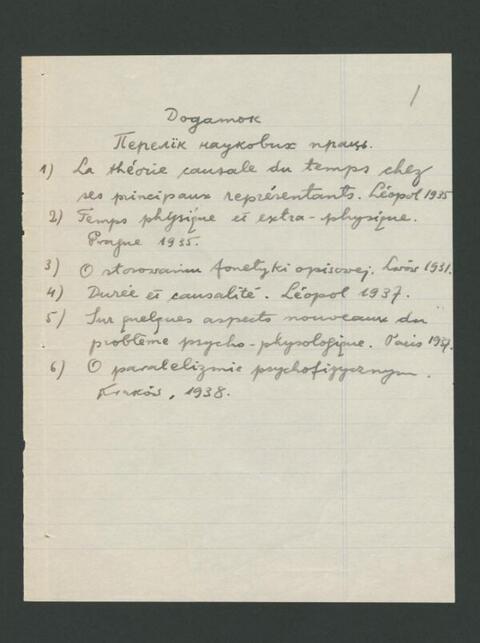 1
Додаток
Перелік наукових праць.
1) La théorie causale du temps chez
ses principaux représentants. Léopol 1935
2) Temps physique et extra-physique.
Prague 1935.
3) O stosowaniu fonetyki opisowej. Lwów 1931.
4) Durée et causalité. Léopol 1937.
5) Sur quelques aspects nouveaux du
problème psycho-physologique. Paris 1937.
6) O paralelizmie psychofizycznym.
Kraków, 1938.